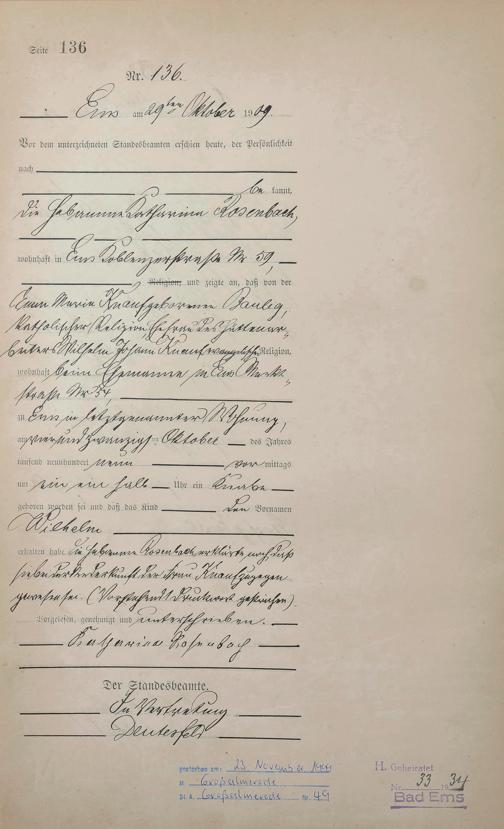 Seite 136
Nr. 136.
Ems am 29ten Oktober 1909.
Vor dem unterzeichneten Standesbeamten erschien heute, der Persönlichkeit
nach
be kannt,
die Hebamme Katharina Rosenbach,
wohnhaft in Ems Koblenzerstraße Nr 59,
Religion, und zeigte an, daß von der
Anna Maria Knauf geborenen
katholischer Religion, Ehefrau des Hüttenar-
beiters Wilhelm Johann Knauf evangelischer Religion,
wohnhaft beim Ehemanne in Ems
straße Nr 54,
zu Ems in letztgenannter Wohnung,
am vier und zwanzigsten Oktober des Jahres
tausend neunhundert neun vor mittags
um ein ein halb Uhr ein Knabe
geboren worden sei und daß das Kind den Vornamen
Wilhelm
erhalten habe. Die Hebamme Rosenbach erklärte, noch daß
sie bei der Niederkunft der Frau Knauf zugegen
gewesen sei. (Vorstehend Druckwort gestrichen).
Vorgelesen, genehmigt und unterschrieben.
Katharina Rosenbach
Der Standesbeamte.
In Vertretung
gestorben am: 23. November
in Großalmerode
St. A. Großalmerode Nr. 49
H. Geheiratet
Nr. 33 1934
Bad Ems